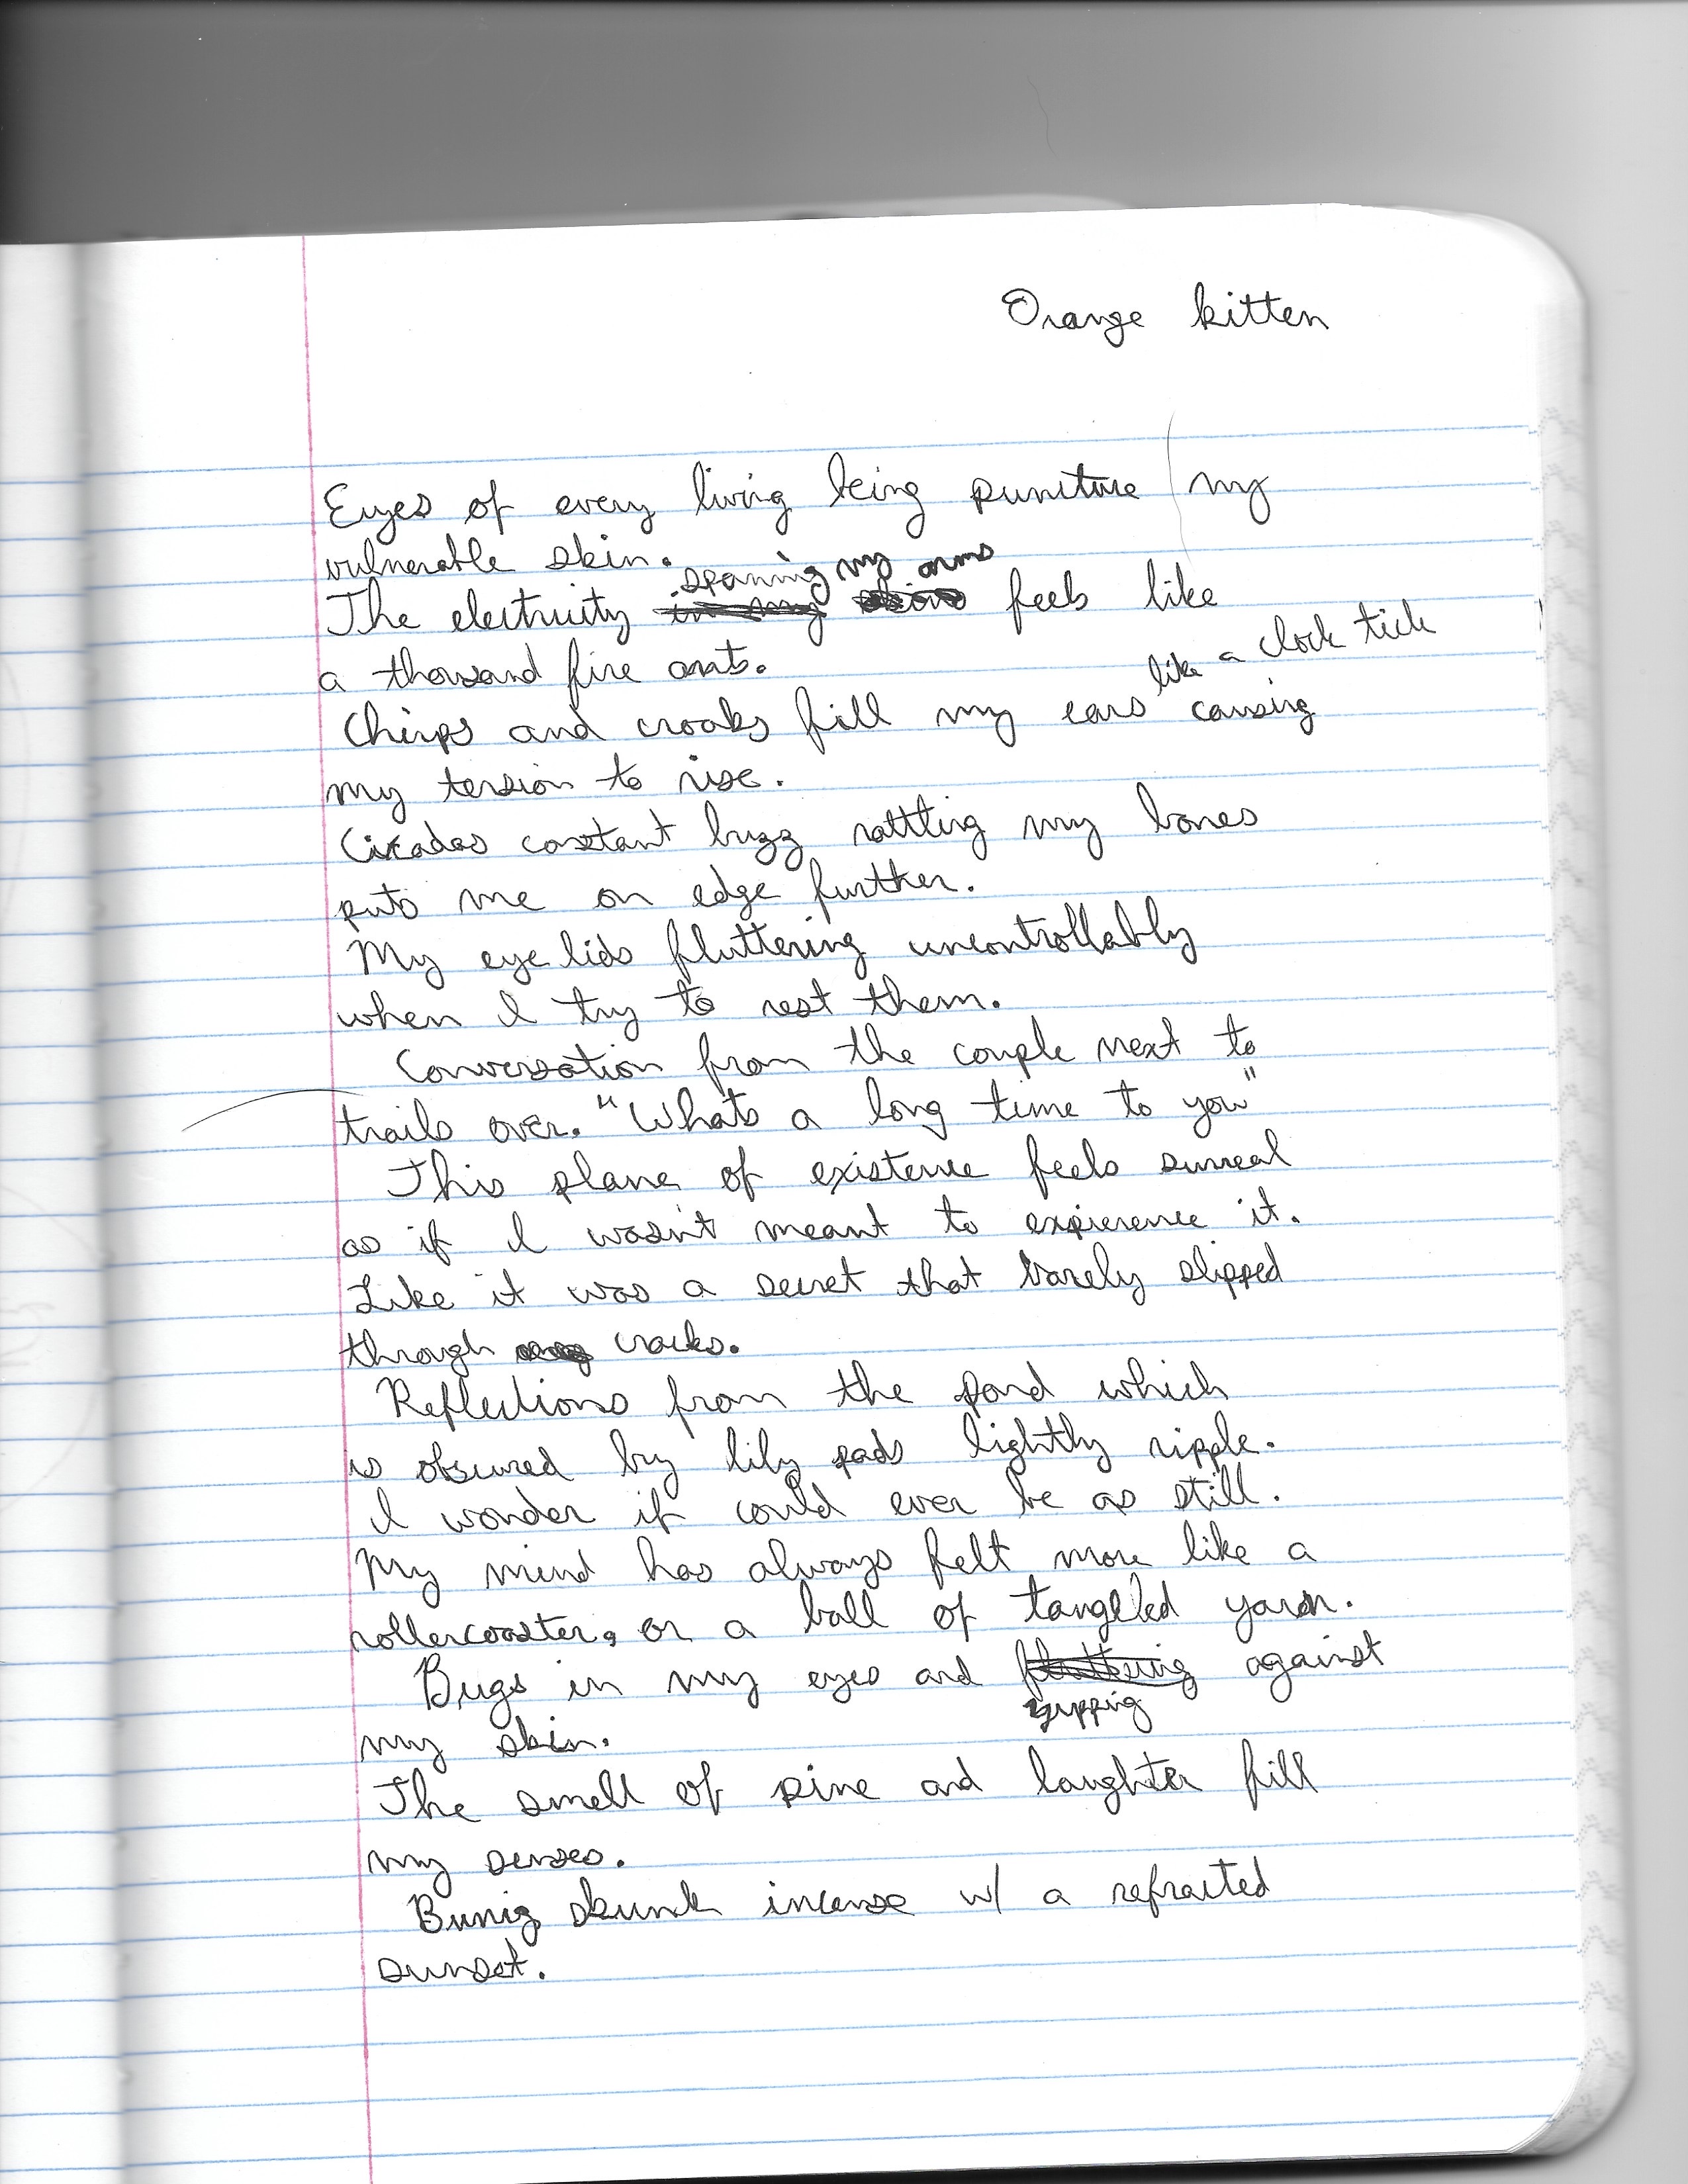 Orange kitten
Eyes of every living being puncture my
vulnerable skin.
spanning my arms
The electricity in my feels like
a thousand fire ants.
like a clock tick
Chirps and croaks fill my ears causing
my tension to rise.
Cicadas constant buzz rattling my bones
puts me on edge further.
My eye lids fluttering uncontrollably
when I try to rest them.
Conversation from the couple next to
trails over. "Whats a long time to you"
This plane of existence feels surreal
as if I wasn't meant to expierence it.
Like it was a secret that barely slipped
through cracks.
Reflections from the pond which
is obscured by lily pads lightly ripple.
I wonder if could ever be as still.
My mind has always felt more like a
rollercoaster, or a ball of tangled yarn.
Bugs in my eyes and fluttering against
zipping
my skin.
The smell of pine and laughter fill
my senses.
Burnig skunk incense w/ a refracted
sunset.